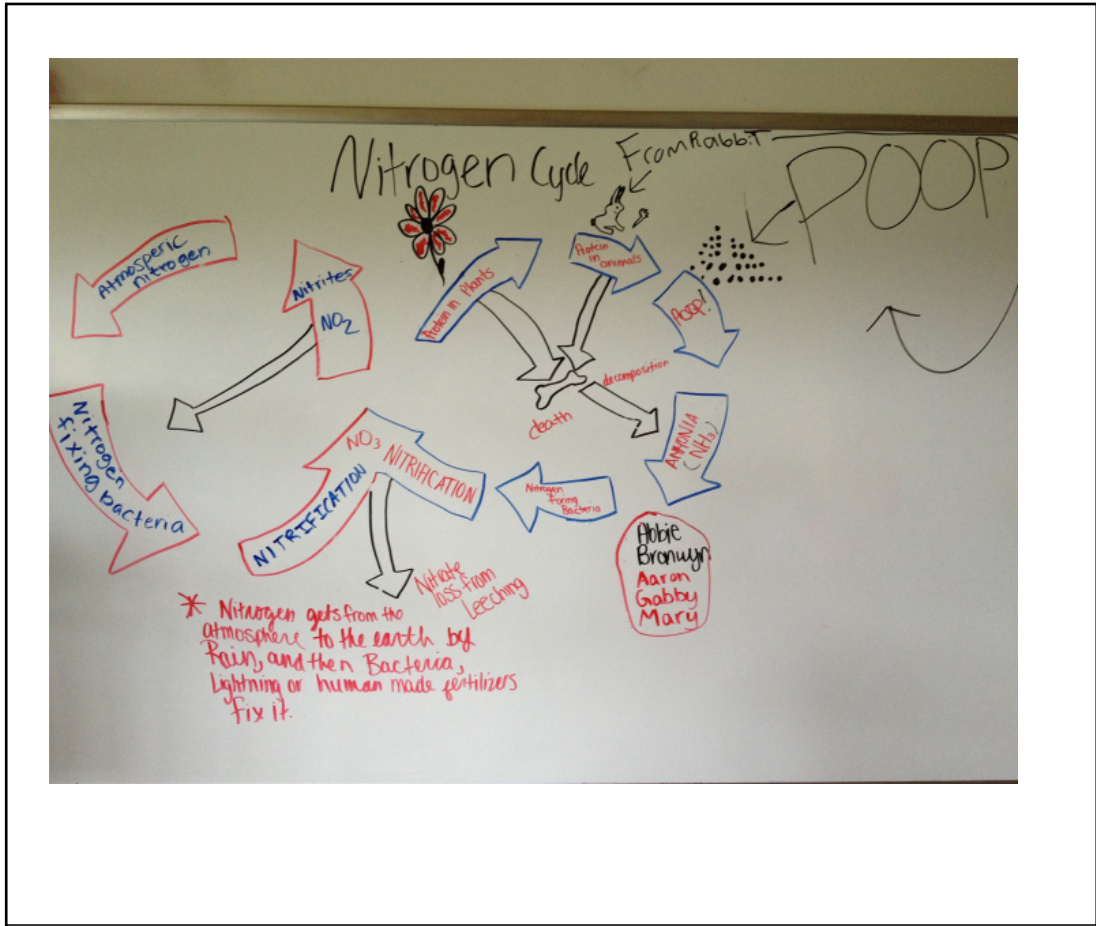 Nitrogen Cycle
From Rabbit
POOP
Atmosperic
nitrogen
Nitrites
NO2
Protein in Plants
Protein
in
animals
POOP!
decomposition
death
AMMONIA
(NH3)
Nitrogen
fixing bacteria
NO3 NITRIFICATION
NITRIFICATION
Nitrogen
Bacteria
Abbie
Bronwyn
Aaron
Gabby
Mary
Nitrate
loss from
Leeching
* Nitrogen gets from the
atmosphere to the earth by
Rain, and then Bacteria,
Lightning or human made fertilizers
fix it.